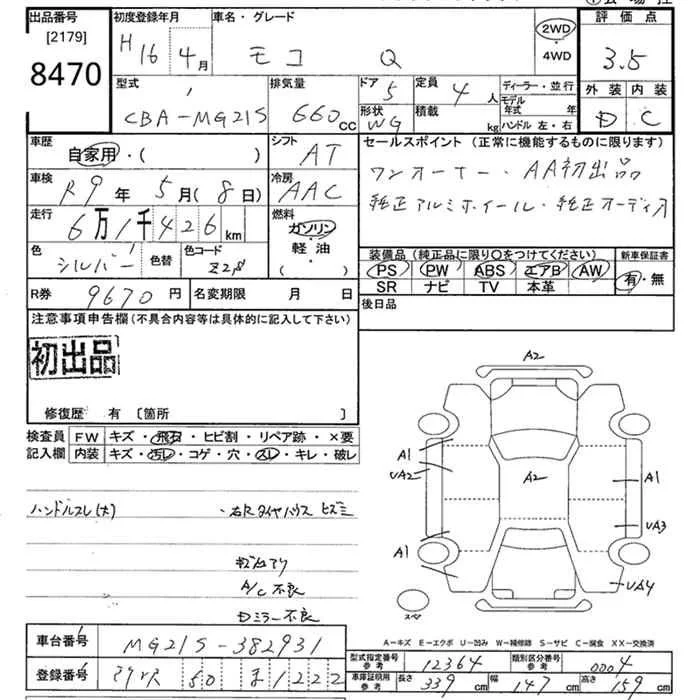 出品番号
[2179]
8470
初度登録年月
H16 4月
車名・グレード
モコ Q
2WD
・4WD
評価点
3.5
外装 内装
D C
型式
CBA-MG21S
排気量
660cc
ドア 5
形状 WG
定員 4人
積載 kg
ディーラー・並行
モデル年式 年
ハンドル 左・右
車歴
自家用・( )
シフト
AT
セールスポイント (正常に機能するものに限ります)
ワンオーナー・AA初出品
純正アルミホイール・純正オーディオ
車検
R9年 5月(8日)
冷房
AAC
走行
6万1千426km
燃料
ガソリン
・軽油
・( )
色
シルバー 色替
色コード
Z2S
装備品 (純正品に限り○をつけてください)
PS PW ABS エアB AW
SR ナビ TV 本革
新車保証書
有・無
R券 9670円
名変期限 月 日
後日品
注意事項申告欄(不具合内容等は具体的に記入して下さい)
初出品
修復歴 有 〔箇所 〕
検査員 FW キズ・飛石・ヒビ割・リペア跡・×要
記入欄 内装 キズ・汚レ・コゲ・穴・スレ・キレ・破レ
ハンドルスレ(大)
・右Rタイヤハウス ヒズミ
A/C 不良
Dミラー不良
A2
A1
UA2
A2
A1
UA3
A1
UA4
スペア
A-キズ E-エクボ U-凹み W-補修跡 S-サビ C-腐食 XX-交換済
車台番号 MG21S-382931
登録番号 50 ま1222
型式指定番号 参考 12364
類別区分番号 参考 0004
車庫証明用 参考 長さ 339cm 幅 147cm 高さ 159cm